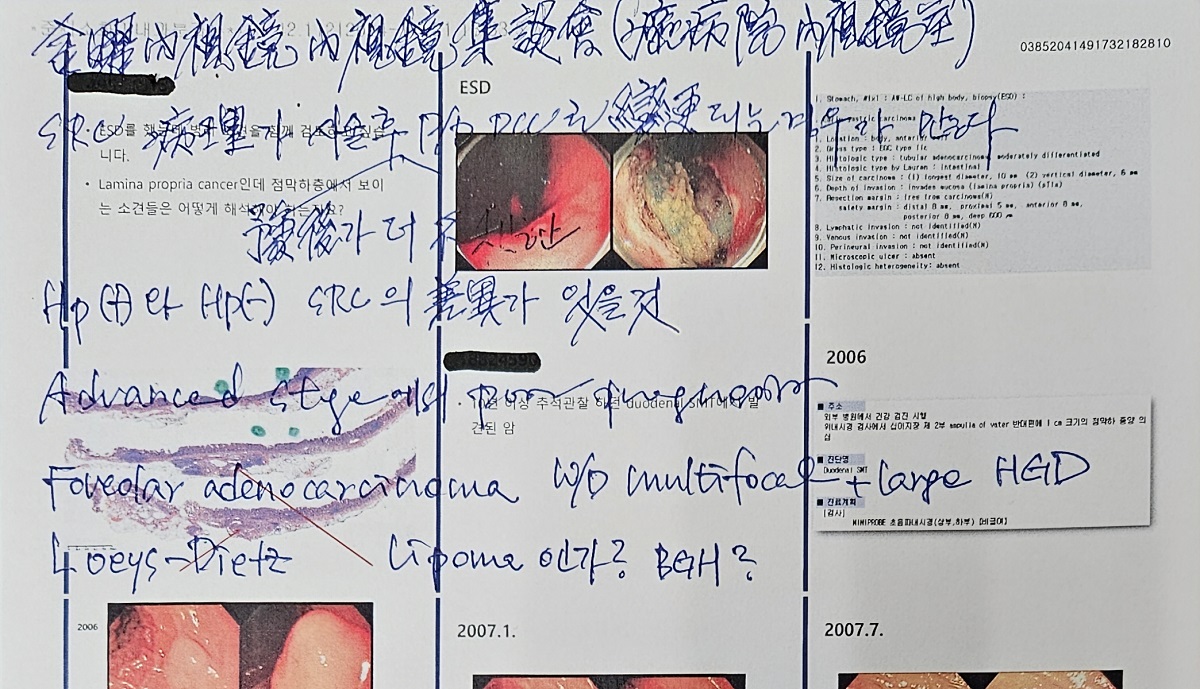 金曜內視鏡 內視鏡 集談會 (癌病院 內視鏡室)
03852041491732182810
ESD
SRC 病理가 시술후 PD PCC로 變更되는 경우가 많다
ESD를 했는데
니다.
• Lamina propria cancer인데 점막하층에서 보이
는 소견들은 어떻게
豫後가 더
1. Stomach, #1x1 : AW-LC of high body, biopsy(ESD) :
carcinoma
1. Location : body, anterior
2. Gross type : EGC type IIc
3. Histologic type : tubular adenocarcinoma, moderately differentiated
4. Histologic type by Lauren : intestinal
5. Size of carcinoma : (1) longest diameter, 10 mm (2) vertical diameter, 6 mm
6. Depth of invasion : invades mucosa (lamina propria) (pT1a)
7. Resection margin : free from carcinoma(N)
safety margin : distal 8 mm, proximal 5 mm, anterior 8 mm,
posterior 8 mm, deep 600 μm
8. Lymphatic invasion : not identified(N)
9. Venous invasion : not identified(N)
10. Perineural invasion : not identified(N)
11. Microscopic ulcer : absent
12. Histologic heterogeneity: absent
Hp(+)와 Hp(-) SRC의 差異가 있을것
2006
Advanced stge에서 poor prognosis
이상 추적관찰 하던 duodenal SMT에서 발
견된 암
■ 주소
외부 병원에서 건강 검진 시행
위내시경 검사에서 십이지장 제 2부 ampulla of vater 반대편에 1 cm 크기의 점막하 종양 의
심
■ 진단명
Duodenal SMT
■ 진료계획
[검사]
MINIPROBE 초음파내시경(상부,하부) [비급여]
Foveolar adenocarcinoma W/O multifocal + large HGD
Loeys-Dietz Lipoma 인가? BGH?
2006
2007.1.
2007.7.